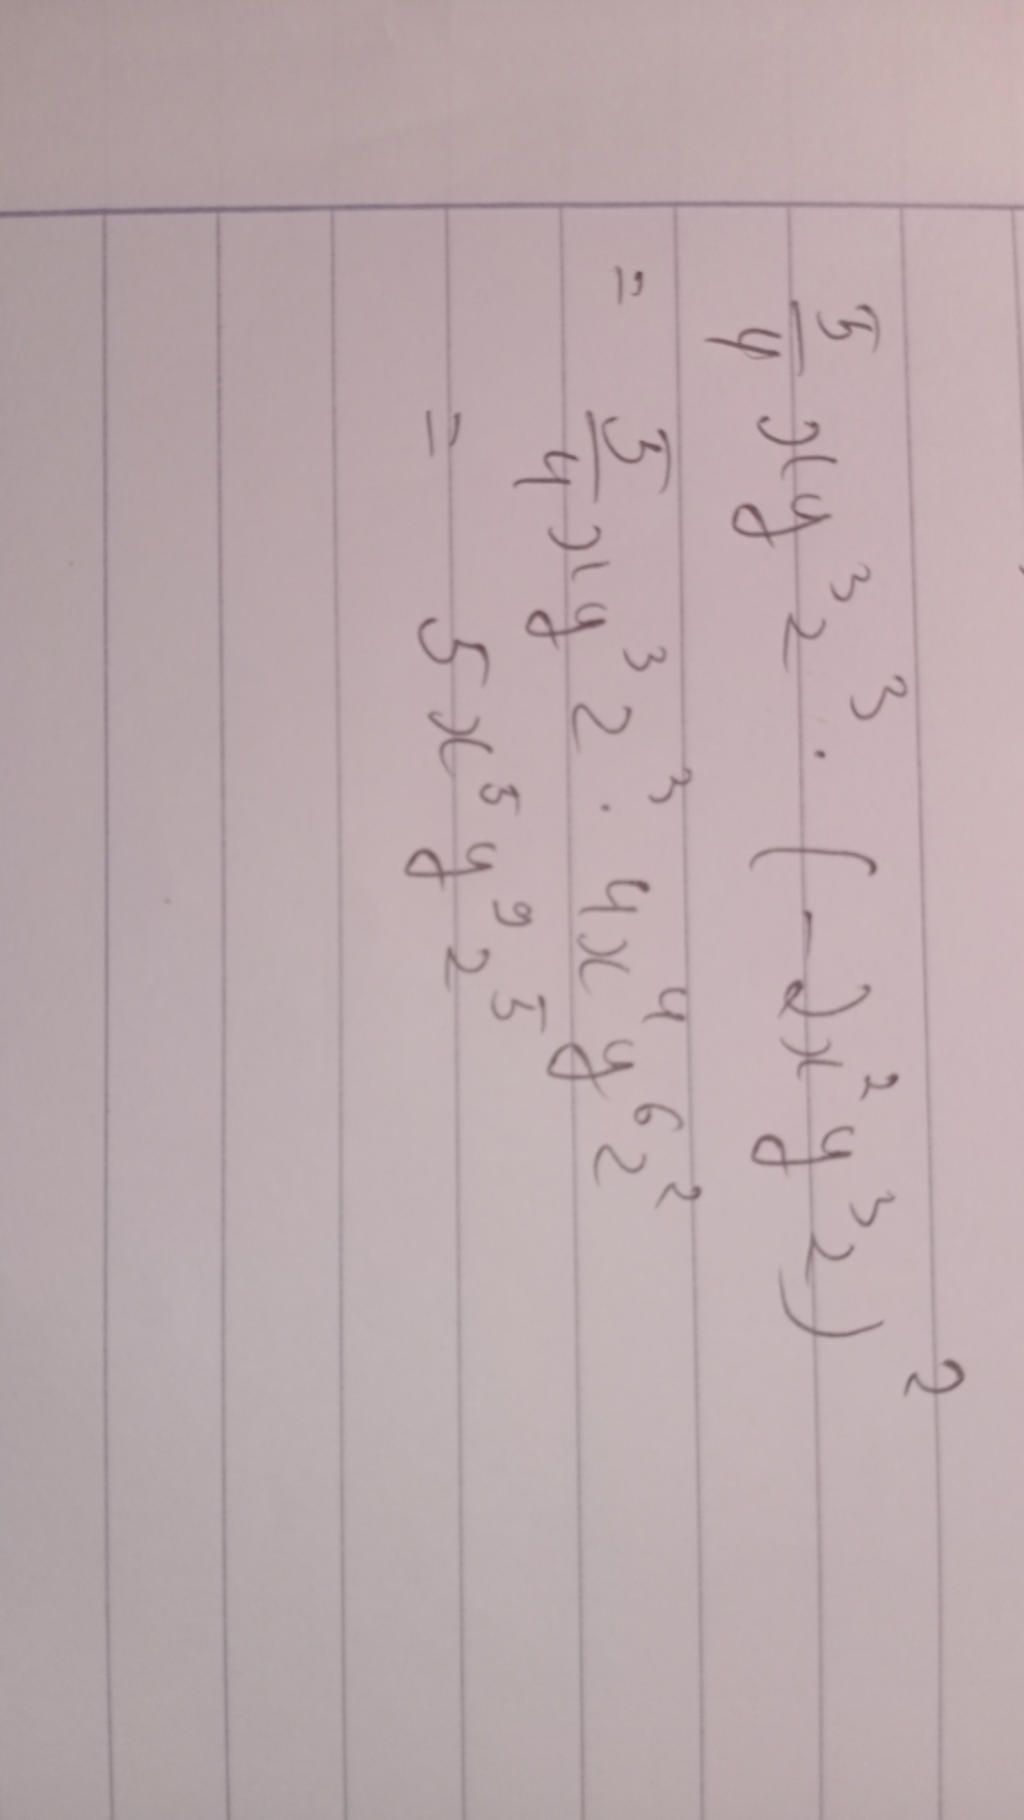 5/4 xy³z³ · (-2x²y³z)²
= 5/4 xy³z³ · 4x⁴y⁶z²
= 5x⁵y⁹z⁵